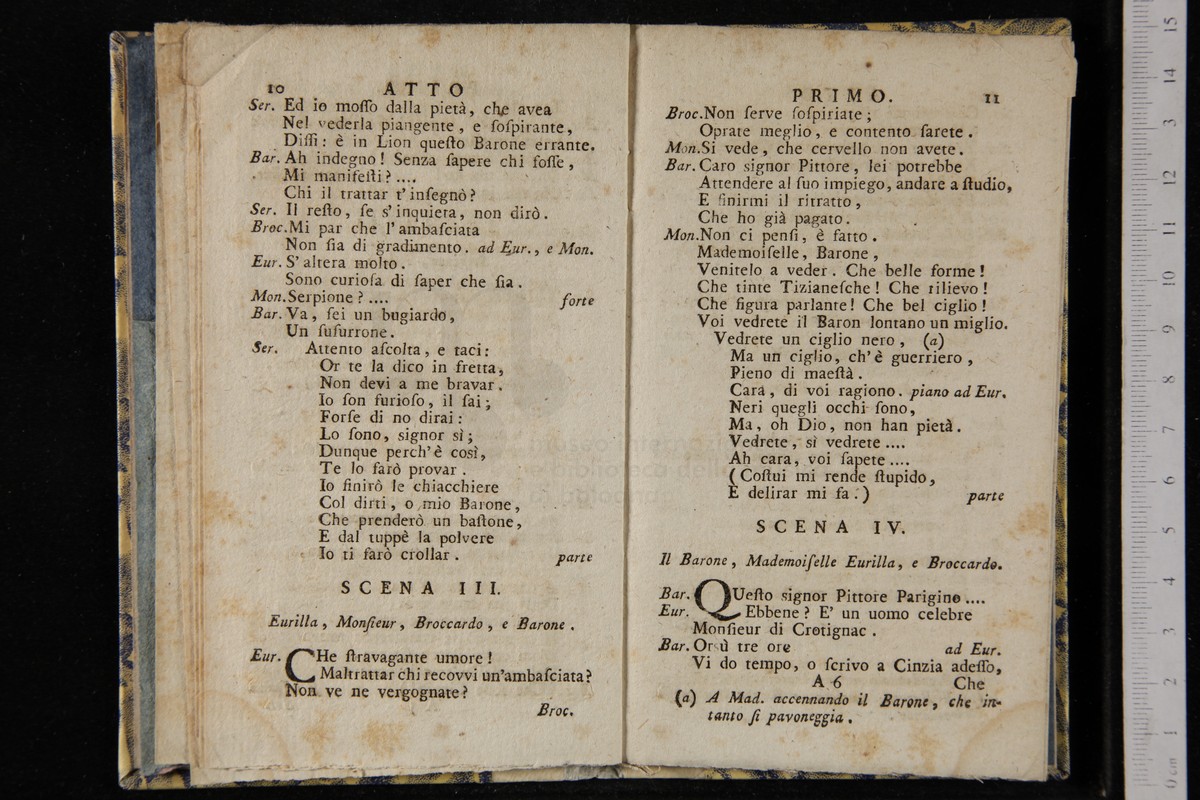 10 ATTO
Ser. Ed io moſſo dalla pietà, che avea
Nel vederla piangente, e ſoſpirante,
Diſſi: è in Lion queſto Barone errante.
Bar. Ah indegno! Senza ſapere chi foſſe,
Mi manifeſti?....
Chi il trattar t'inſegnò?
Ser. Il reſto, ſe s'inquieta, non dirò.
Broc. Mi par che l'ambaſciata
Non ſia di gradimento. ad Eur., e Mon.
Eur. S'altera molto.
Sono curioſa di ſaper che ſia.
Mon. Serpione?.... forte
Bar. Va, ſei un bugiardo,
Un ſuſurrone.
Ser. Attento aſcolta, e taci:
Or te la dico in fretta,
Non devi a me bravar.
Io ſon furioſo, il ſai;
Forſe di no dirai:
Lo ſono, signor sì;
Dunque perch'è così,
Te lo farò provar.
Io finirò le chiacchiere
Col dirti, o mio Barone,
Che prenderò un baſtone,
E dal tuppè la polvere
Io ti farò crollar. parte
SCENA III.
Eurilla, Monſieur, Broccardo, e Barone.
Eur. CHe ſtravagante umore!
Maltrattar chi recovvi un'ambaſciata?
Non ve ne vergognate?
Broc.
PRIMO. 11
Broc. Non ſerve ſoſpiriate;
Oprate meglio, e contento ſarete.
Mon. Si vede, che cervello non avete.
Bar. Caro signor Pittore, lei potrebbe
Attendere al ſuo impiego, andare a ſtudio,
E finirmi il ritratto,
Che ho già pagato.
Mon. Non ci penſi, è fatto.
Mademoiſelle, Barone,
Venitelo a veder. Che belle forme!
Che tinte Tizianeſche! Che rilievo!
Che figura parlante! Che bel ciglio!
Voi vedrete il Baron lontano un miglio.
Vedrete un ciglio nero, (a)
Ma un ciglio, ch'è guerriero,
Pieno di maeſtà.
Cara, di voi ragiono. piano ad Eur.
Neri quegli occhi ſono,
Ma, oh Dio, non han pietà.
Vedrete, sì vedrete....
Ah cara, voi ſapete....
(Coſtui mi rende ſtupido,
E delirar mi fa.) parte
SCENA IV.
Il Barone, Mademoiſelle Eurilla, e Broccardo.
Bar. QUeſto signor Pittore Parigino....
Eur. Ebbene? E' un uomo celebre
Monſieur di Crotignac.
Bar. Orsù tre ore ad Eur.
Vi do tempo, o ſcrivo a Cinzia adeſſo,
A 6 Che
(a) A Mad. accennando il Barone, che in-
tanto ſi pavoneggia.